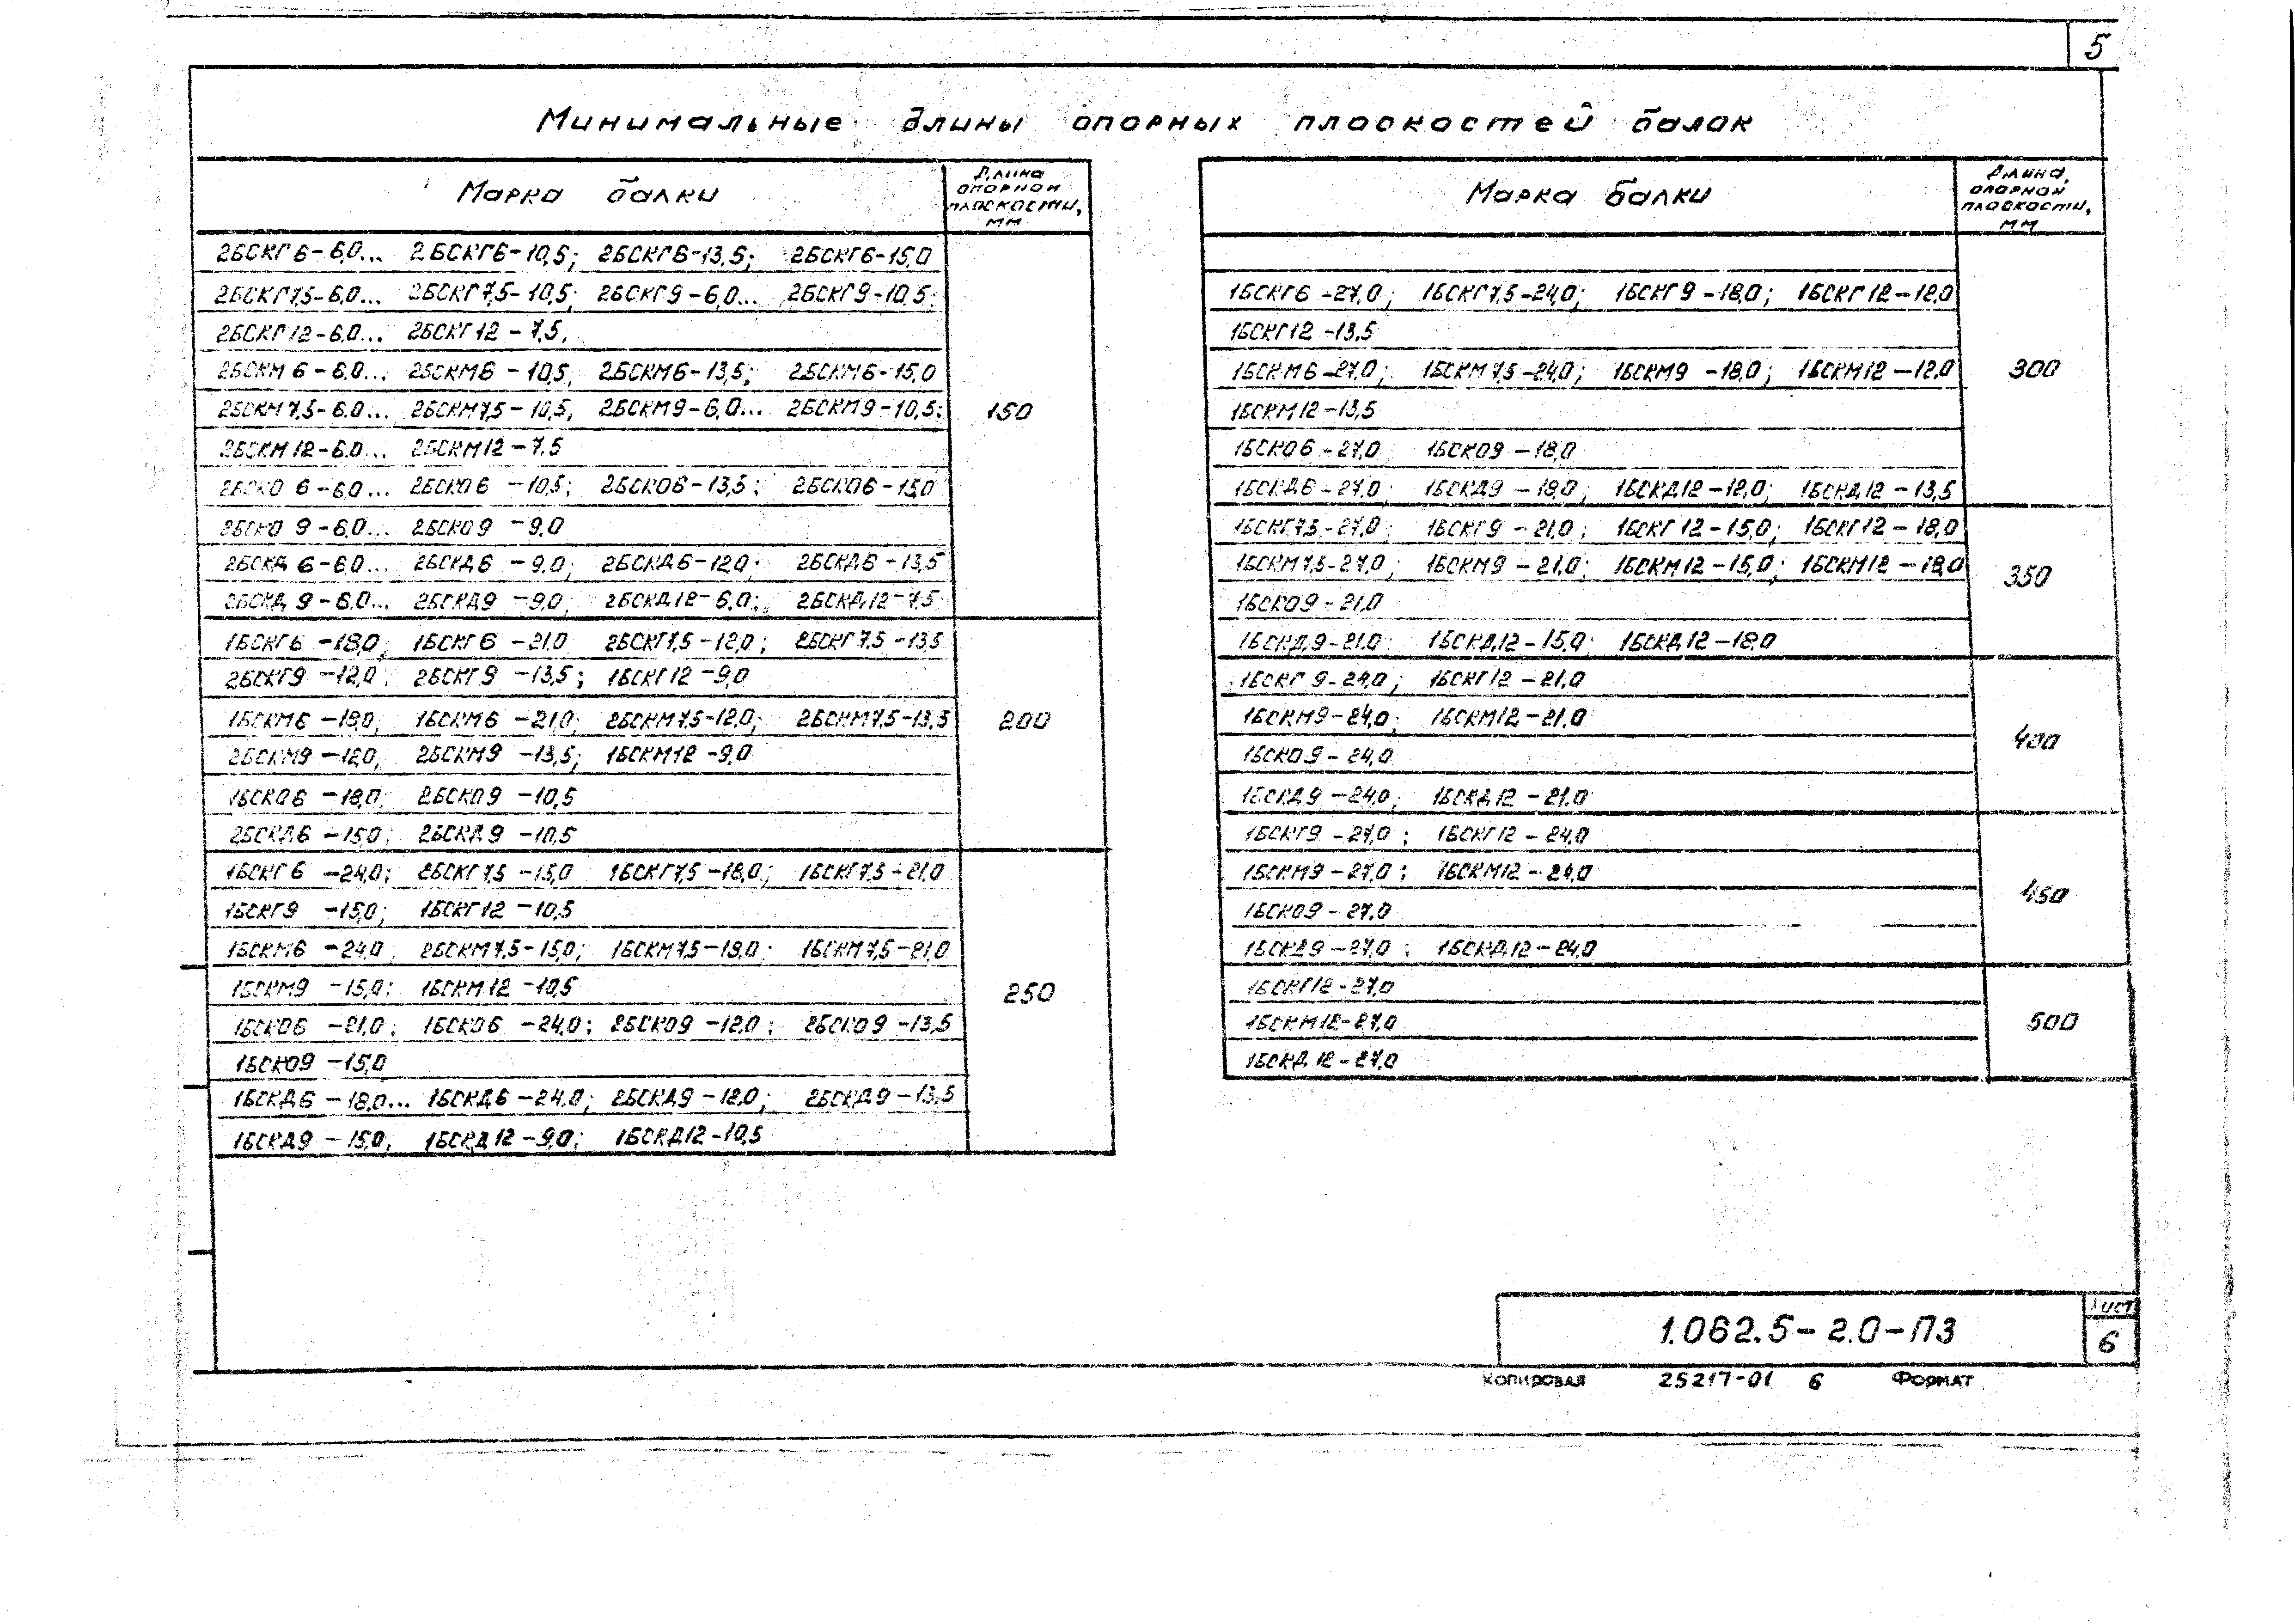 5
Минимальные длины опорных плоскостей балок
Марка балки
Длина опорной плоскости, мм
2БСКГ6-6,0... 2БСКГ6-10,5; 2БСКГ6-13,5; 2БСКГ6-15,0
2БСКГ7,5-6,0... 2БСКГ7,5-10,5; 2БСКГ9-6,0... 2БСКГ9-10,5;
2БСКГ12-6,0... 2БСКГ12-7,5,
2БСКМ6-6,0... 2БСКМ6-10,5, 2БСКМ6-13,5; 2БСКМ6-15,0
2БСКМ7,5-6,0... 2БСКМ7,5-10,5, 2БСКМ9-6,0... 2БСКМ9-10,5;
2БСКМ12-6,0... 2БСКМ12-7,5
2БСКО6-6,0... 2БСКО6-10,5; 2БСКО6-13,5; 2БСКО6-15,0
2БСКО9-6,0... 2БСКО9-9,0
2БСКД6-6,0... 2БСКД6-9,0; 2БСКД6-12,0; 2БСКД6-13,5
2БСКД9-6,0... 2БСКД9-9,0; 2БСКД12-6,0; 2БСКД12-7,5
150
1БСКГ6-18,0; 1БСКГ6-21,0 2БСКГ7,5-12,0; 2БСКГ7,5-13,5
2БСКГ9-12,0; 2БСКГ9-13,5; 1БСКГ12-9,0
1БСКМ6-18,0; 1БСКМ6-21,0; 2БСКМ7,5-12,0; 2БСКМ7,5-13,5
2БСКМ9-12,0; 2БСКМ9-13,5; 1БСКМ12-9,0
1БСКО6-18,0; 2БСКО9-10,5
2БСКД6-15,0; 2БСКД9-10,5
200
1БСКГ6-24,0; 2БСКГ7,5-15,0 1БСКГ7,5-18,0; 1БСКГ7,5-21,0
1БСКГ9-15,0; 1БСКГ12-10,5
1БСКМ6-24,0 2БСКМ7,5-15,0; 1БСКМ7,5-18,0; 1БСКМ7,5-21,0
1БСКМ9-15,0; 1БСКМ12-10,5
1БСКО6-21,0; 1БСКО6-24,0; 2БСКО9-12,0; 2БСКО9-13,5
1БСКО9-15,0
1БСКД6-18,0... 1БСКД6-24,0; 2БСКД9-12,0; 2БСКД9-13,5
1БСКД9-15,0, 1БСКД12-9,0; 1БСКД12-10,5
250
Марка балки
Длина опорной плоскости, мм
1БСКГ6-27,0; 1БСКГ7,5-24,0; 1БСКГ9-18,0; 1БСКГ12-12,0
1БСКГ12-13,5
1БСКМ6-27,0; 1БСКМ7,5-24,0; 1БСКМ9-18,0; 1БСКМ12-12,0
1БСКМ12-13,5
1БСКО6-27,0 1БСКО9-18,0
1БСКД6-27,0; 1БСКД9-18,0; 1БСКД12-12,0; 1БСКД12-13,5
300
1БСКГ7,5-27,0; 1БСКГ9-21,0; 1БСКГ12-15,0; 1БСКГ12-18,0
1БСКМ7,5-27,0; 1БСКМ9-21,0; 1БСКМ12-15,0; 1БСКМ12-18,0
1БСКО9-21,0
1БСКД9-21,0; 1БСКД12-15,0; 1БСКД12-18,0
350
1БСКГ9-24,0; 1БСКГ12-21,0
1БСКМ9-24,0; 1БСКМ12-21,0
1БСКО9-24,0
1БСКД9-24,0; 1БСКД12-21,0
400
1БСКГ9-27,0; 1БСКГ12-24,0
1БСКМ9-27,0; 1БСКМ12-24,0
1БСКО9-27,0
1БСКД9-27,0; 1БСКД12-24,0
450
1БСКГ12-27,0
1БСКМ12-27,0
1БСКД12-27,0
500
1.062.5-2.0-ПЗ
Лист
6
Копировал 25217-01 6 Формат